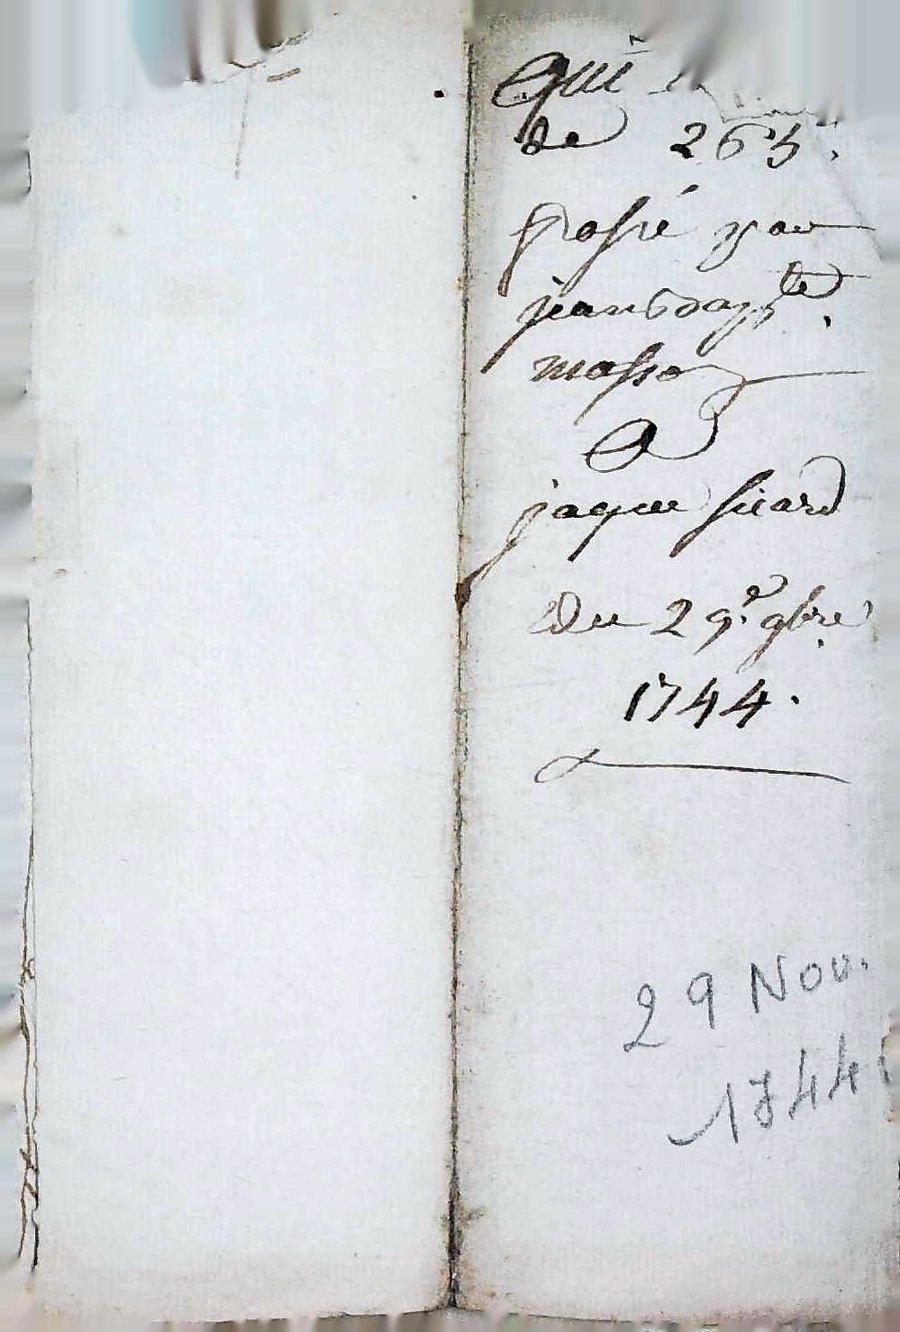 Qui
de 265.
passé par
jean bap.te
masso
A
jaque sicard
Du 29.e 9bre
1744.
29 Nov.
1744